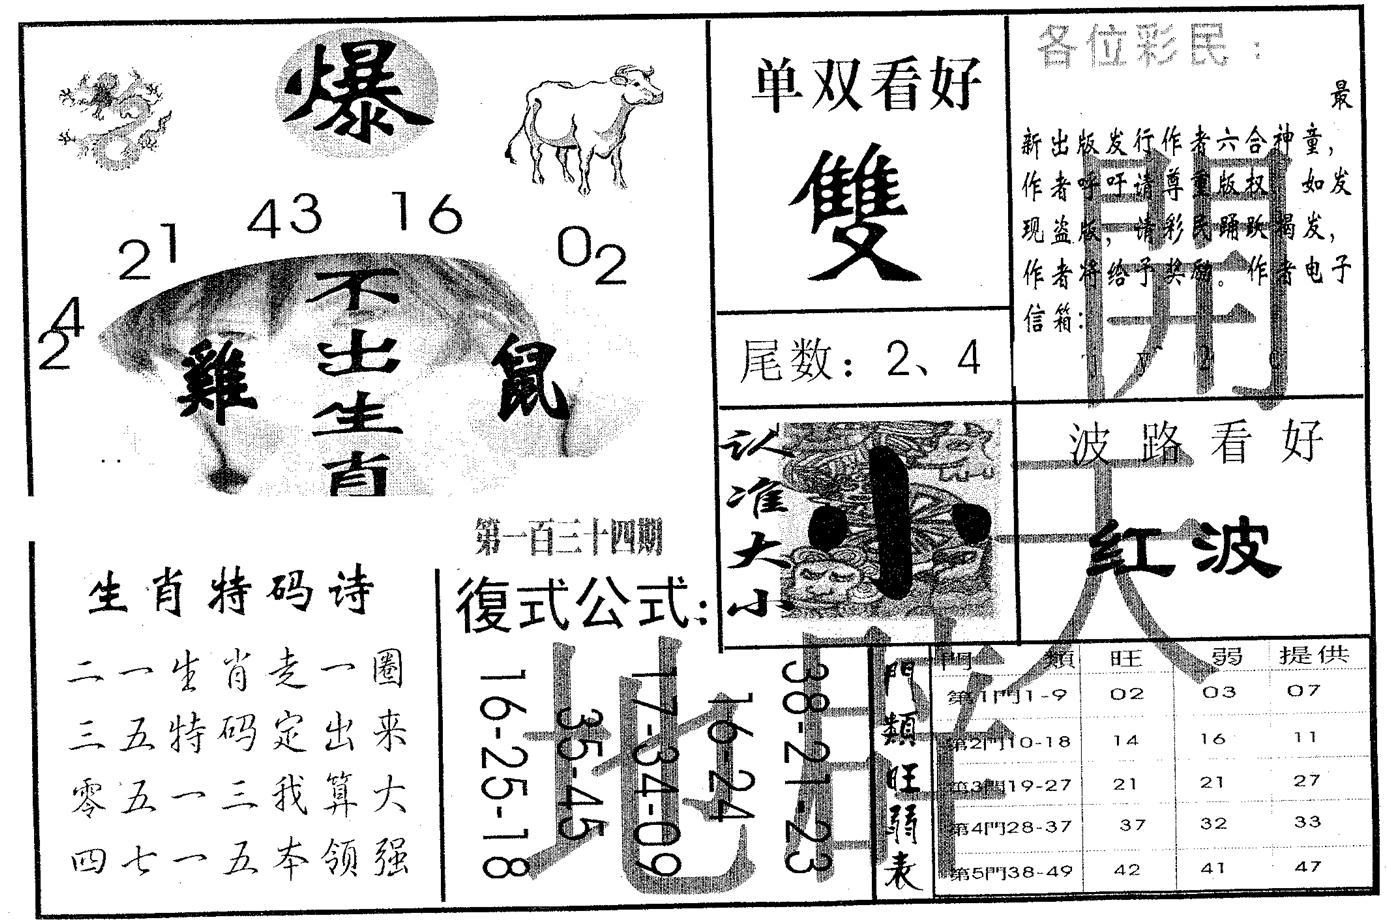 爆
24
21
43
16
02
不出生肖
雞
鼠
第一百三十四期
生肖特码诗
二一生肖走一圈
三五特码定出来
零五一三我算大
四七一五本领强
復式公式:
16-25-18
35-45
17-34-09
16-24
38-21-23
单双看好
雙
尾数：2、4
认准大小
小
各位彩民：
最
新出版发行作者六合神童，
作者呼吁请尊重版权 如发
现盗版，请彩民踊跃揭发，
作者将给予奖励。作者电子
信箱:
波路看好
红波
開天
地
門類旺弱表
門類 旺 弱 提供
第1門1-9 02 03 07
第2門10-18 14 16 11
第3門19-27 21 21 27
第4門28-37 37 32 33
第5門38-49 42 41 47